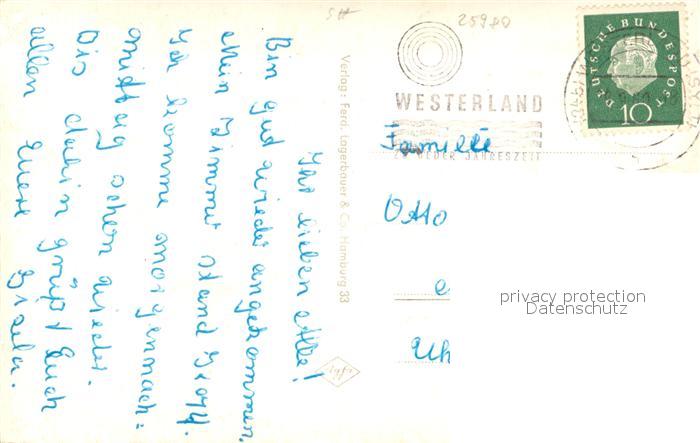 Ihr lieben alle!
Bin gut wieder angekommen.
Mein Zimmer stand
Ich komme morgennach=
mittag schon wieder.
Bis dahin grüßt Euch
allen Eure Gisela.
Verlag: Ferd. Lagerbauer & Co. Hamburg 33
25980
WESTERLAND
ZU JEDER JAHRESZEIT
DEUTSCHE BUNDESPOST
10
Familie
Otto
e
Uh
privacy protection
Datenschutz